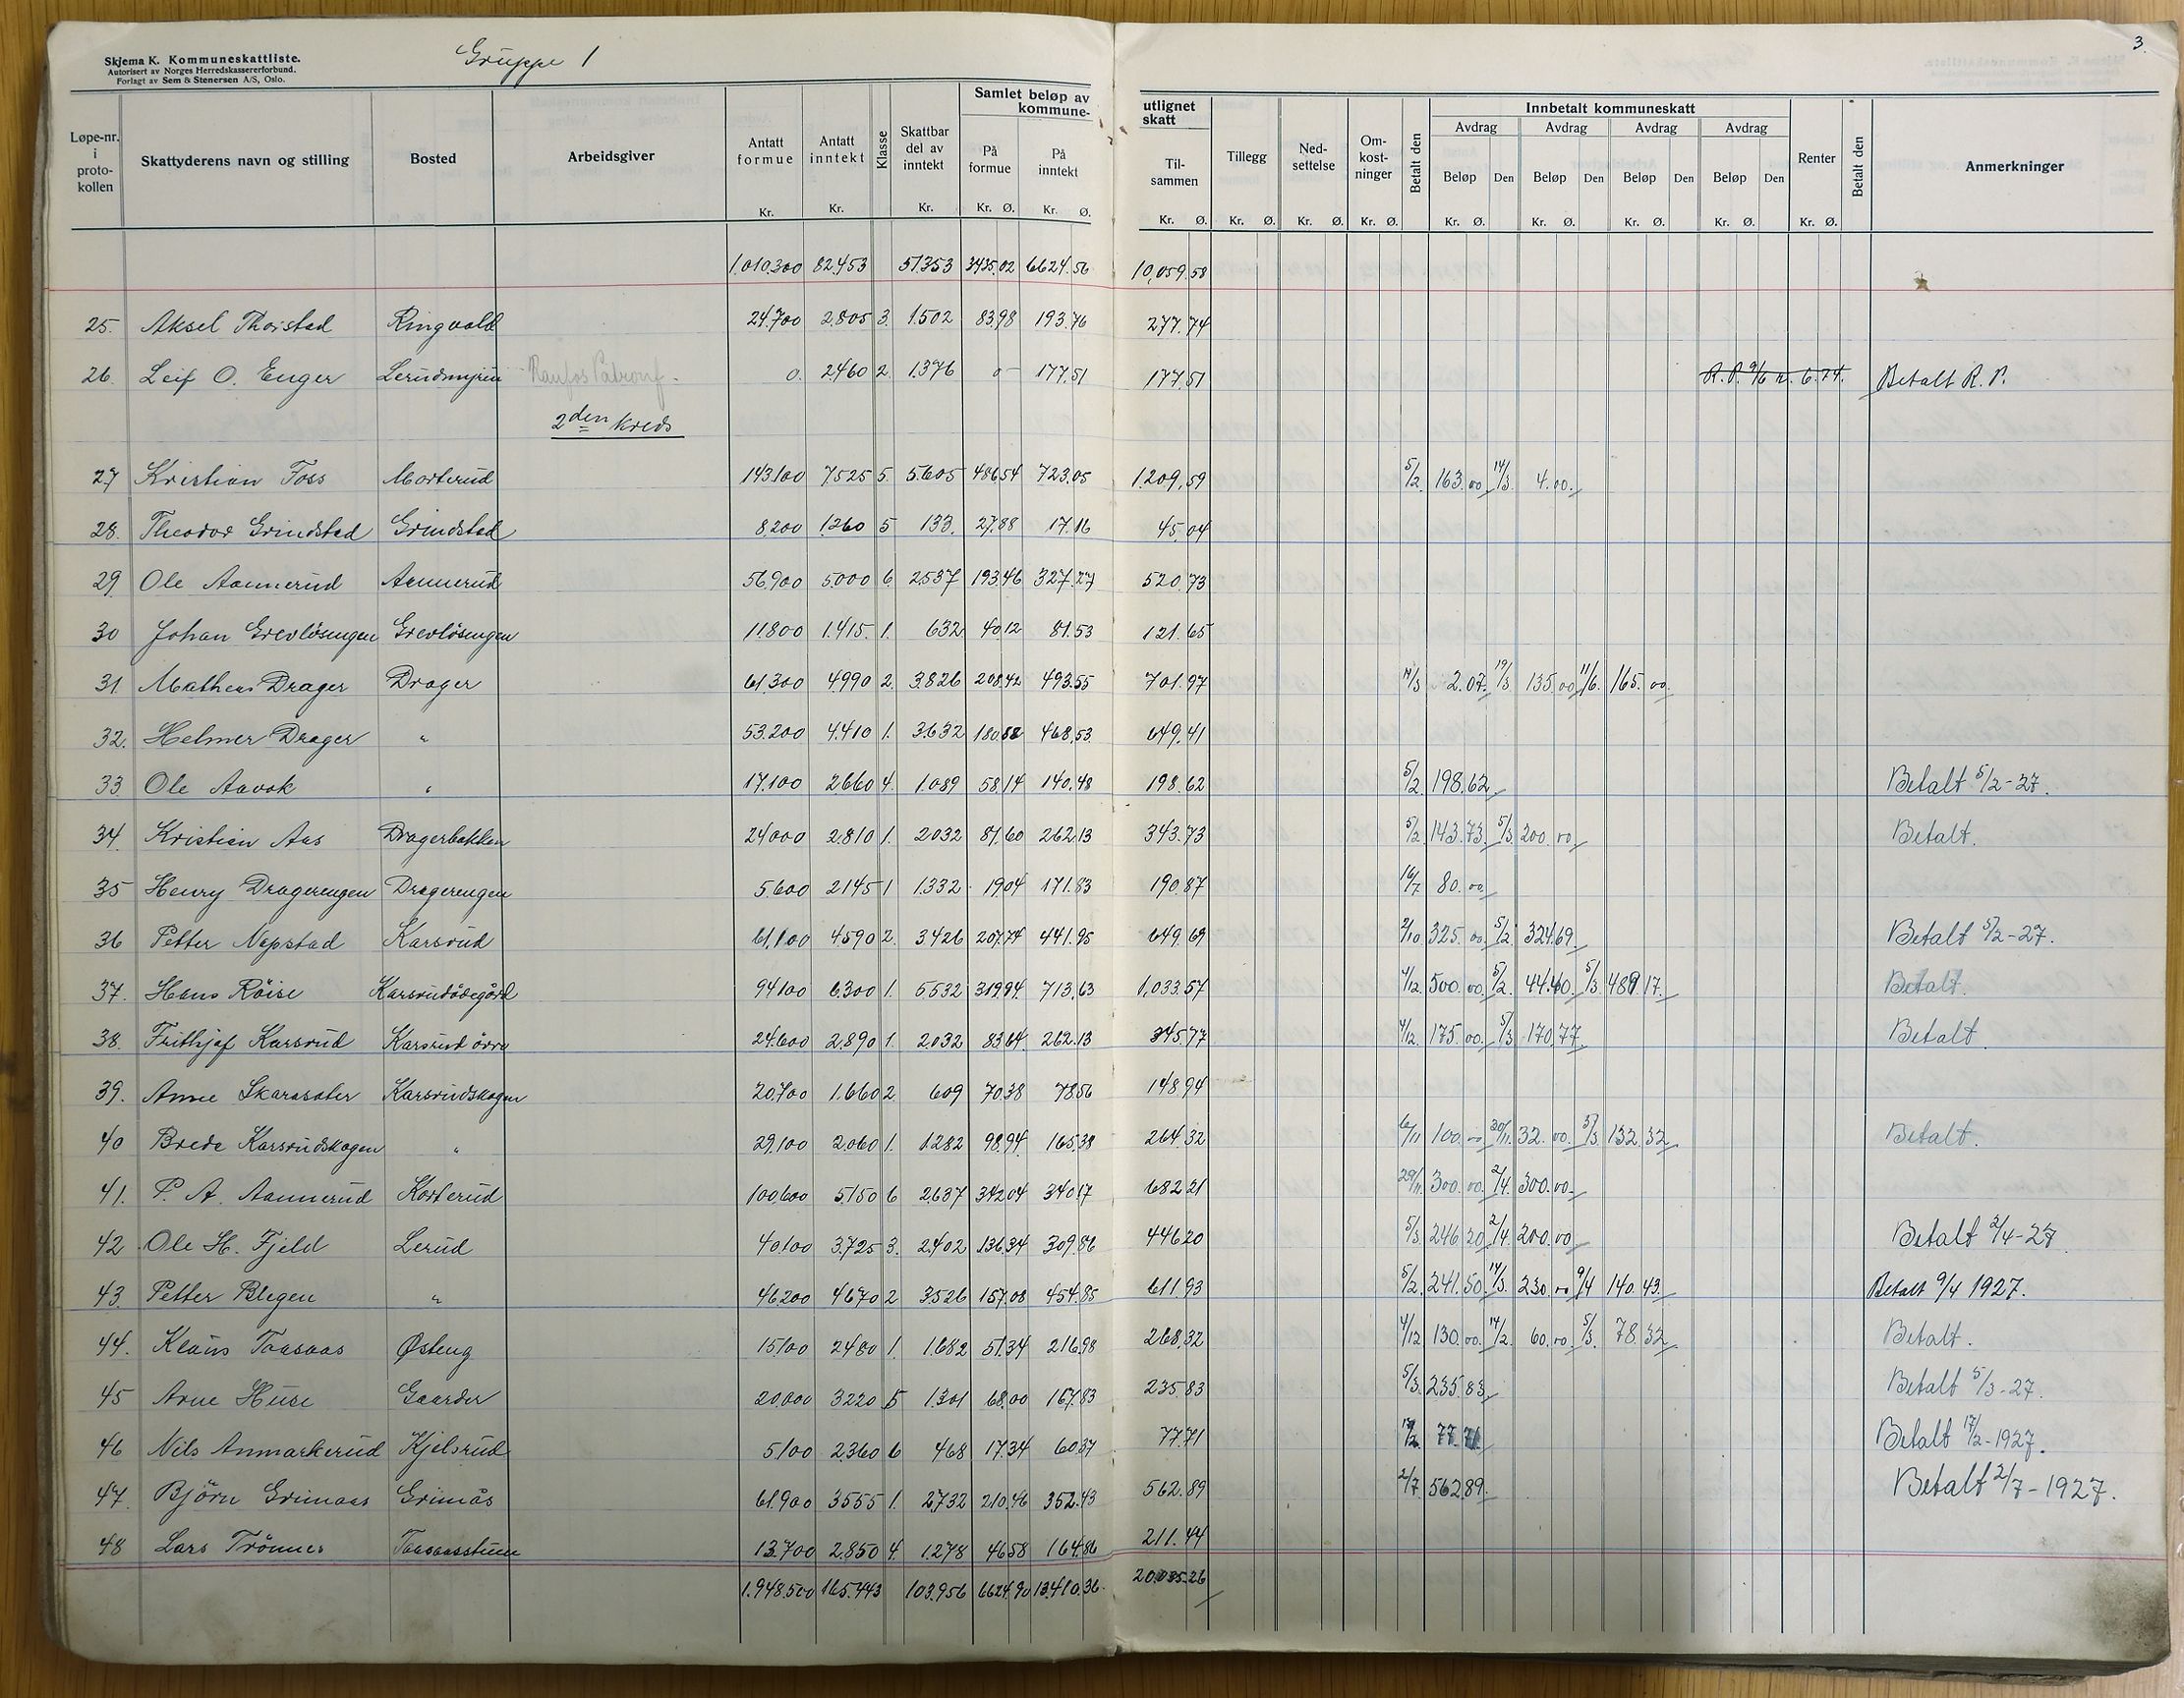 Skjema K. Kommuneskattliste.
Autorisert av Norges Herredskassererforbund.
Forlagt av Sem & Stenersen A/S, Oslo.
Gruppe 1
3.
Løpe-nr. i proto-kollen | Skattyderens navn og stilling | Bosted | Arbeidsgiver | Antatt formue Kr. | Antatt inntekt Kr. | Klasse | Skattbar del av inntekt Kr. | Samlet beløp av kommune- | På formue Kr. Ø. | På inntekt Kr. Ø. | utlignet skatt | Til-sammen Kr. Ø. | Tillegg Kr. Ø. | Ned-settelse Kr. Ø. | Om-kost-ninger Kr. Ø. | Betalt den | Innbetalt kommuneskatt | Avdrag Beløp Kr. Ø. Den | Avdrag Beløp Kr. Ø. Den | Avdrag Beløp Kr. Ø. Den | Avdrag Beløp Kr. Ø. Den | Renter Kr. Ø. | Betalt den | Anmerkninger
1.010.300 82.453 51353 3435.02 6624.56 10,059.58
25. Aksel Thorstad Ringvold 24.700 2.805 3. 1.502 83.98 193.76 277.74
26. Leif O. Enger Lerudmyren Raufos Patronf. 0. 2460 2. 1.376 0 177.51 177.51 R.P. 9/6 n. 6.74. Betalt R.P.
2den Kreds
27 Kristian Foss Morterud 143.100 7.525 5. 5.605 486.54 723.05 1.209.59 5/2. 163.00 14/3. 4.00.
28. Theodor Grindstad Grindstad 8.200 1.260 5 133. 27.88 17.16 45.04
29. Ole Aannerud Aannerud 56.900 5.000 6. 2.537 193.46 327.27 520.73
30 Johan Grevlösengen Grevlösengen 11.800 1.415. 1. 632 40.12 81.53 121.65
31. Matheus Drager Drager 61.300 4990 2. 3.826 208.42 493.55 701.97 2.07. 19/3 135.00 11/6. 165.00.
32. Helmer Drager " 53.200 4.410 1. 3.632 180.88 468.53 649.41
33 Ole Aavok " 17.100 2.660 4. 1.089 58.14 140.48 198.62 5/2. 198.62 Betalt 5/2-27.
34. Kristian Aas Dragerbakken 24000 2.810 1. 2032 81.60 262.13 343.73 5/2. 143.73. 5/3 200.00 Betalt.
35 Henry Dragerengen Dragerengen 5.600 2145 1 1.332 19.04 171.83 190.87 16/7 80.00
36 Petter Nepstad Karsrud 61.100 4590 2. 3.426 207.74 441.95 649.69 2/10 325.00 5/2. 324.69 Betalt 5/2-27.
37. Hans Röise Karsrudödegård 94.100 6.300 1. 5.532 319.94. 713.63 1,033.57 4/12. 500.00 5/2. 44.40 5/3. 489.17. Betalt.
38. Frithjof Karsrud Karsrud övre 24.600 2.890 1. 2.032 83.64. 262.13 345.77 4/12. 175.00. 5/3 170.77 Betalt.
39. Anne Skarasater Karsrudskogen 20.700 1.660 2. 609 70.38 78.56 148.94
40 Brede Karsrudskogen " 29.100 2.060 1. 1.282 98.94. 165.38 264.32 6/11 100.00 20/11. 32.00. 5/3. 132.32 Betalt.
41. P. A. Aannerud Korterud 100.600 5.150 6 2.637 342.04 340.17 682.21 29/11. 300.00. 2/4. 300.00.
42 Ole H. Fjeld Lerud 40.100 3.725 3. 2.402 136.34 309.86 446.20 5/3. 246.20 2/4. 200.00 Betalt 2/4-27.
43. Petter Blegen " 46.200 4670 2 3.526 157.08 454.85 611.93 5/2. 241.50 14/3. 230.00 9/4 140.43. Betalt 9/4 1927.
44. Klaus Taasaas Østeng 15.100 2480 1. 1.682 51.34 216.98 268.32 4/12 130.00. 14/2. 60.00. 5/3. 78.32 Betalt.
45 Arne Huse Gaarder 20.000 3220 5 1.301 68.00 167.83 235.83 5/3. 235.83. Betalt 5/3-27.
46 Nils Anmarkerud Kjelsrud 5.100 2.360 6 468 17.34 60.37 77.71 17/2. 77.71 Betalt 17/2-1927.
47. Björn Grimaas Grimås 61.900 3555 1. 2.732 210.46 352.43 562.89 2/7. 562.89. Betalt 2/7-1927.
48 Lars Trönnes Taasaasstuen 13.700 2.850 4. 1.278 46.58 164.86 211.44
1.948.500 165.443 103.956 6624.90 13.410.36. 20.035.26